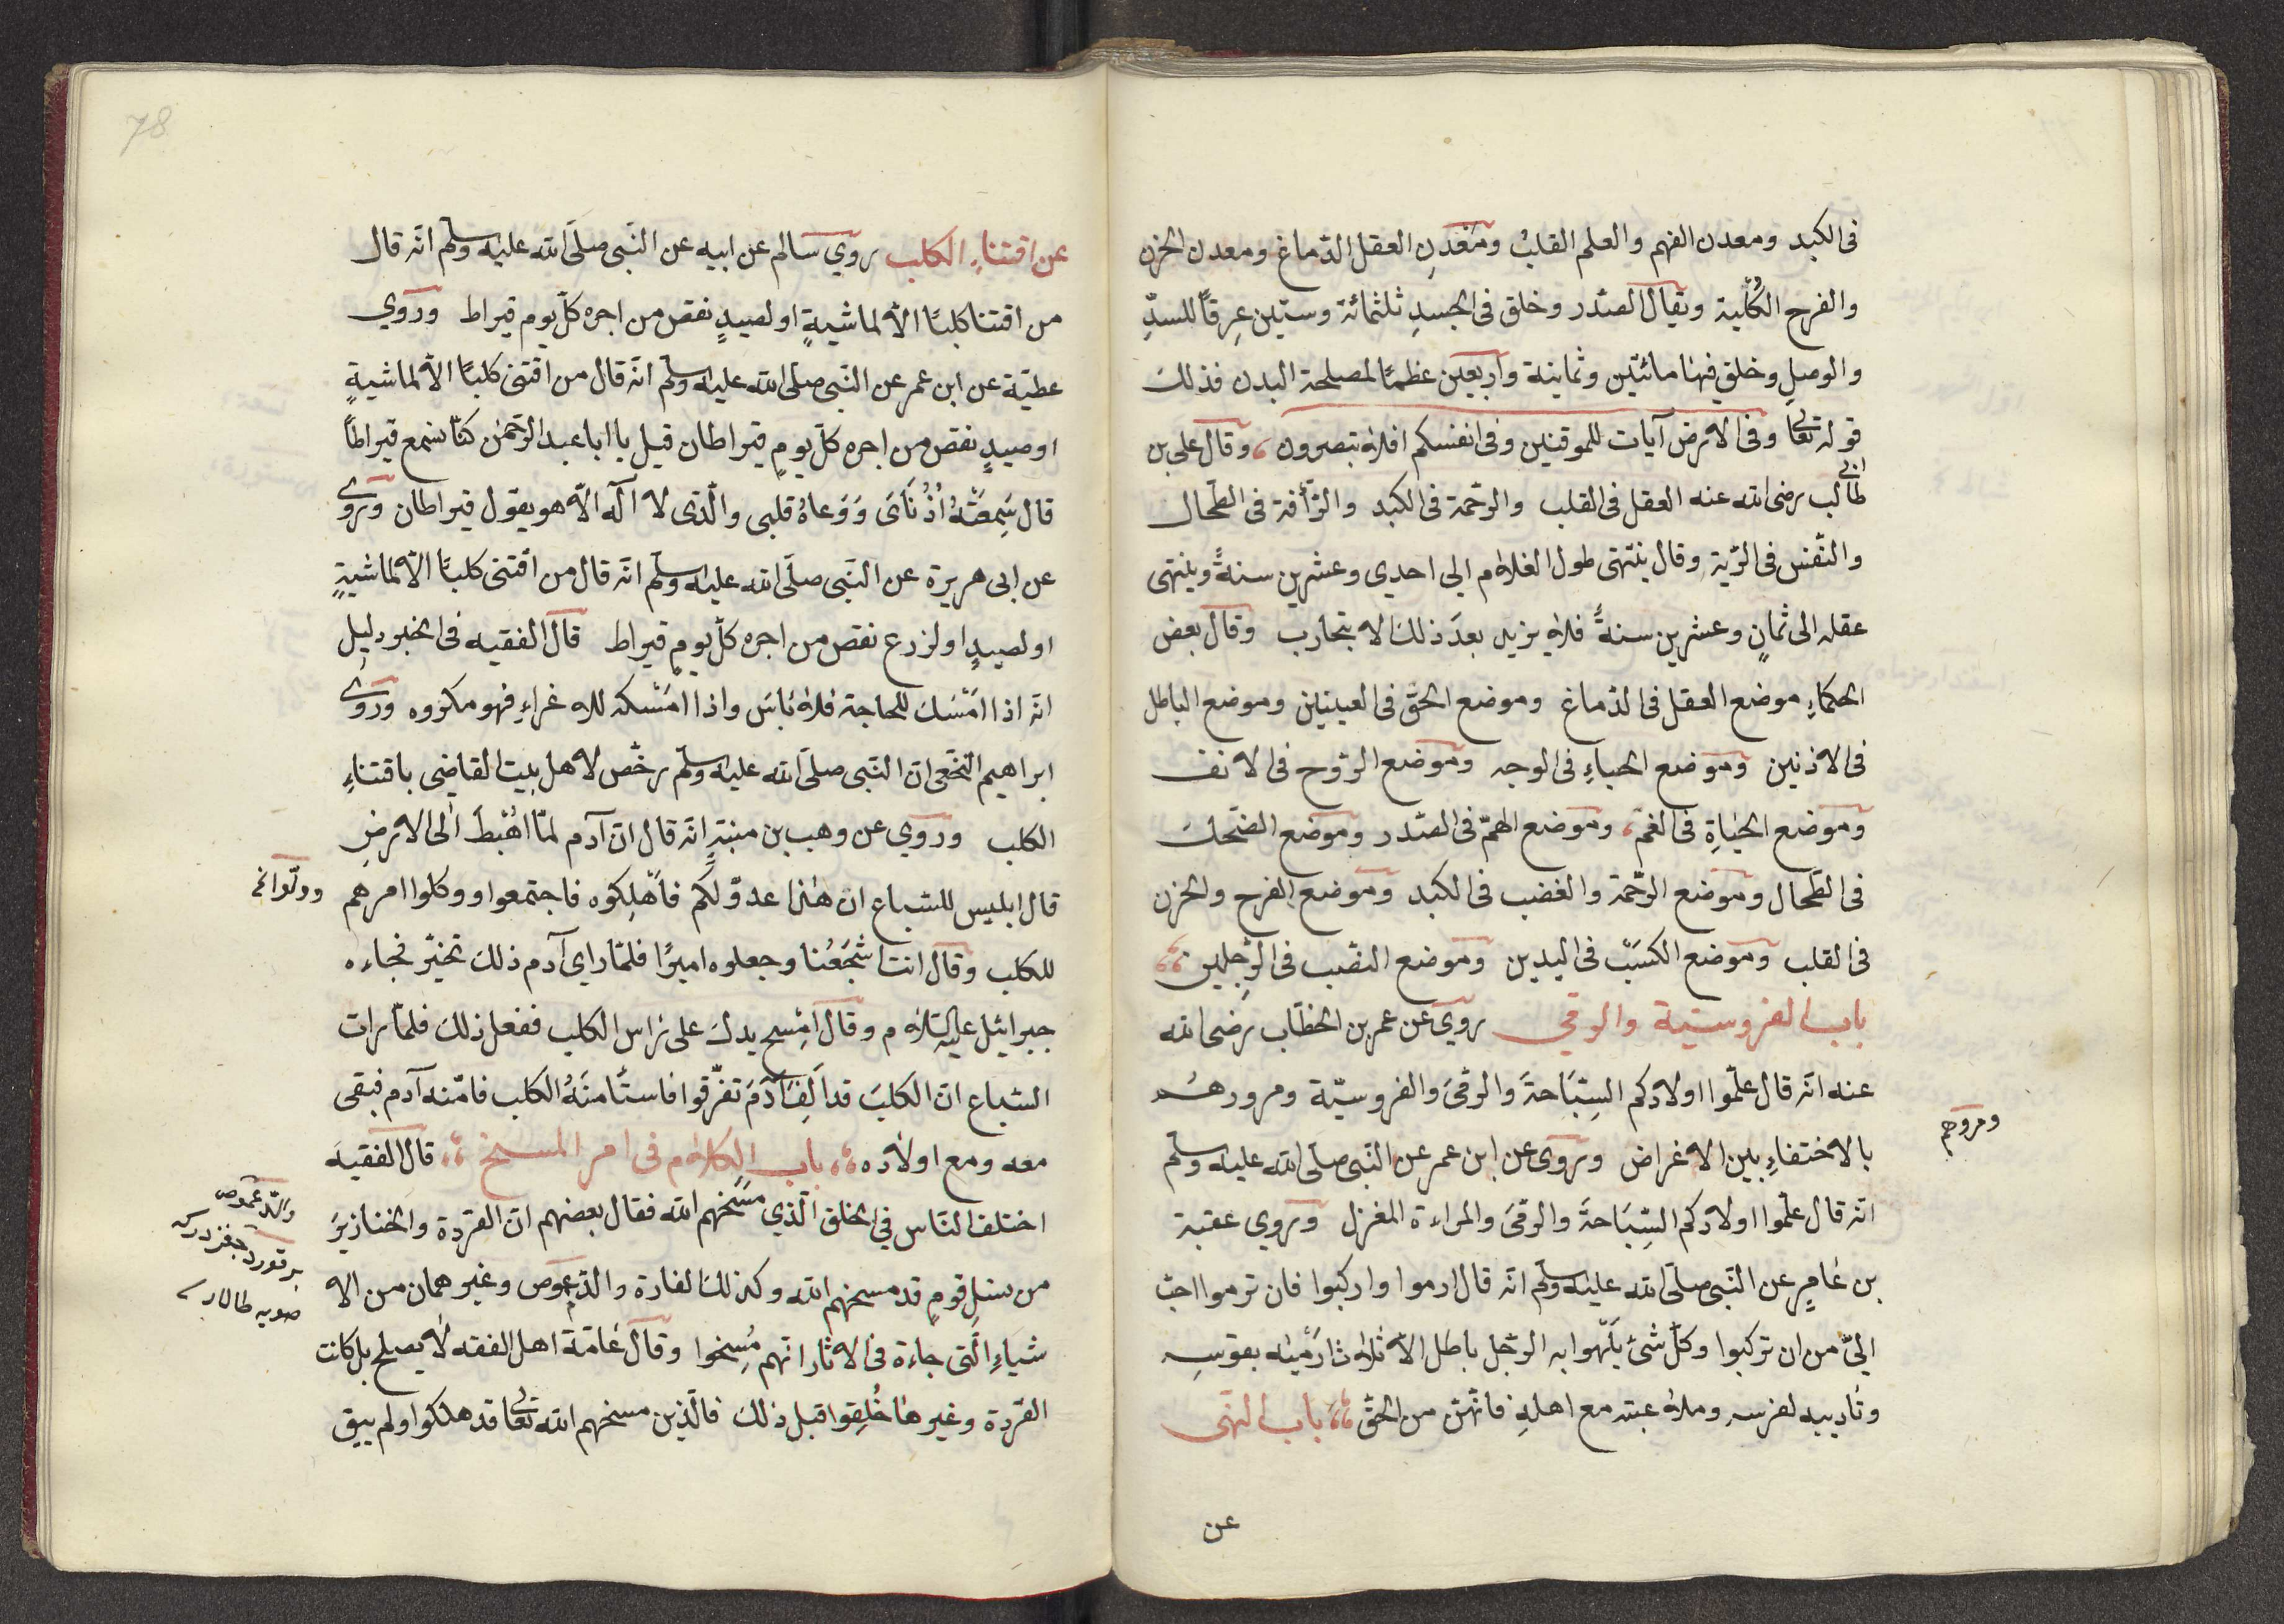 فى الكبد ومعدن الفهم والعلم القلبُ ومَعْدِنِ العقل الدّماغ ومعدن الحزن
والفرح الكُلْية ويقال الصّدر وخلق فى الجسدِ ثلثمائة وستين عِرقاً للسدِّ
والوصلِ وخلق فيها مائتين وثمانية وأربعين عظمًا لمصلحة البدن فذلك
قوله تعالى وفى الارض آيات للموقنين وفى انفسكم افلا تبصرون ، وقال على بن
ابى
طالب رضى الله عنه العقل فى القلب والرّحمة فى الكبد والرّأفة فى الطّحال
والنّفس فى الرّية وقال ينتهى طول الغلام الي احدي وعشرين سنةً وينتهى
عقله الى ثمانٍ وعشرين سنةً فلا يزيد بعدَ ذلك الا بتجارب وقال بعض
الحكماءِ موضع العقل فى الدّماغ وموضع الحقّ فى العينين وموضع الباطل
فى الاذنين وموضع الحياءِ فى الوجه وموضع الرّوح فى الانف
وموضع الحياةِ فى الفم ، وموضع الهمّ فى الصّدر وموضع الضّحك
فى الطّحال وموضع الرّحمة والغضب فى الكبد وموضع الفرح والحزن
فى القلب وموضع الكسْب فى اليدين وموضع النّصب فى الرِّجلين ؛
باب الفروسيّة والرمي روي عن عمر بن الخطّاب رضى الله
عنه انّه قال علّموا اولادكم السِّبَاحةَ والرمْىَ والفروسيّة ومرورهُم
بالاختفاءِ بين الاغراض وروى عن ابن عمر عن النّبى صلّى الله عليه وسلّم
انّه قال علّموا اولادكم السِّبَاحةَ والرمْىَ والمراءة المغزل وروي عقبة
بن عامرٍ عن النّبى صلّى الله عليه وسلّم انّه قال ارموا واركبوا فان ترموا احبّ
اليّ من ان تركبوا وكلّ شئ يَلْهوا به الرّجل باطل الّا ثلاثا رَمْيَه بقوسِه
وتاديبه لفرسه وملاعبته مع اهلهِ فانّهنّ من الحقّ ؛ باب النّهى
عن
ومروهم
78
عن اقتناءِ الكلب روي سالم عن ابيه عن النّبى صلّى الله عليه وسلّم انّه قال
من اقتنا كلبًا الّا لماشيةٍ او لصيدٍ نقص من اجره كلّ يوم قيراط وروي
عطيّة عن ابن عمر عن النّبى صلّى الله عليه وسلّم انّه قال من اقتنى كلبًا الّا لماشيةٍ
او صيدٍ نقص من اجره كلّ يومٍ قيراطان قيل يا ابا عبد الرّحمن كنّا نسمع قيراطاً
قال سَمِعَتْهُ اُذُنَاىَ وَوَعاهُ قلبى والّذى لا آله الّا هو يقول قيراطان وروى
عن ابى هريرة عن النّبى صلّى الله عليه وسلّم انّه قال من اقتنى كلبًا الّا لماشيةٍ
او لصيدٍ او لزرع نقص من اجره كلّ يومٍ قيراط قال الفقيه فى الخبر دليل
انّه اذا امْسَكَ للحاجة فلا بَاسَ واذا امْسَكه للاغراءِ فهو مكروه وروى
ابراهيم النّخعى انّ النّبى صلّى الله عليه وسلّم رخّص لاهل بيت القاضى باقتناءِ
الكلب وروي عن وهب بن منبّهٍ انّه قال انّ آدم لمّا اُهْبطَ الى الارضِ
قال ابليس للسّباع ان هذا عدوّ لكم فاَهْلِكوه فاجتمعوا ووكلوا امرهم
للكلب وقال انت اشْجَعُنا وجعلوه اميرًا فلمّا راى آدم ذلك تحيّر فجاءه
جبرائيل عليه السّلام وقال امْسح يدك على رَاس الكلب ففعل ذلك فلمّا رات
السّباع انّ الكلبَ قد اَلِفَ آدَمَ تفرّقوا فاستَأمنَهُ الكلب فامّنه آدم فبقى
معه ومع اولاده ؛ باب الكلام فى امر المسخ ؛ قال الفقيه
اختلف النّاس في الخلق الّذي مسَخهم الله فقال بعضهم انّ القرَدة والخنازيرَ
من نسل قومٍ قد مسخهم الله وكذلك الفارة والدّعموص وغيرهما من الا
شياءِ الّتى جاءة فى الاثار انّهم مُسِخوا وقال عَامّة اهل الفقه لا يصلح بل كانت
القردة وغيرها خُلِقوا قبل ذلك فالّذين مسخهم الله تعالى قد هلكوا ولم يبق
والدّعموص
بر قورد
صويه طالار